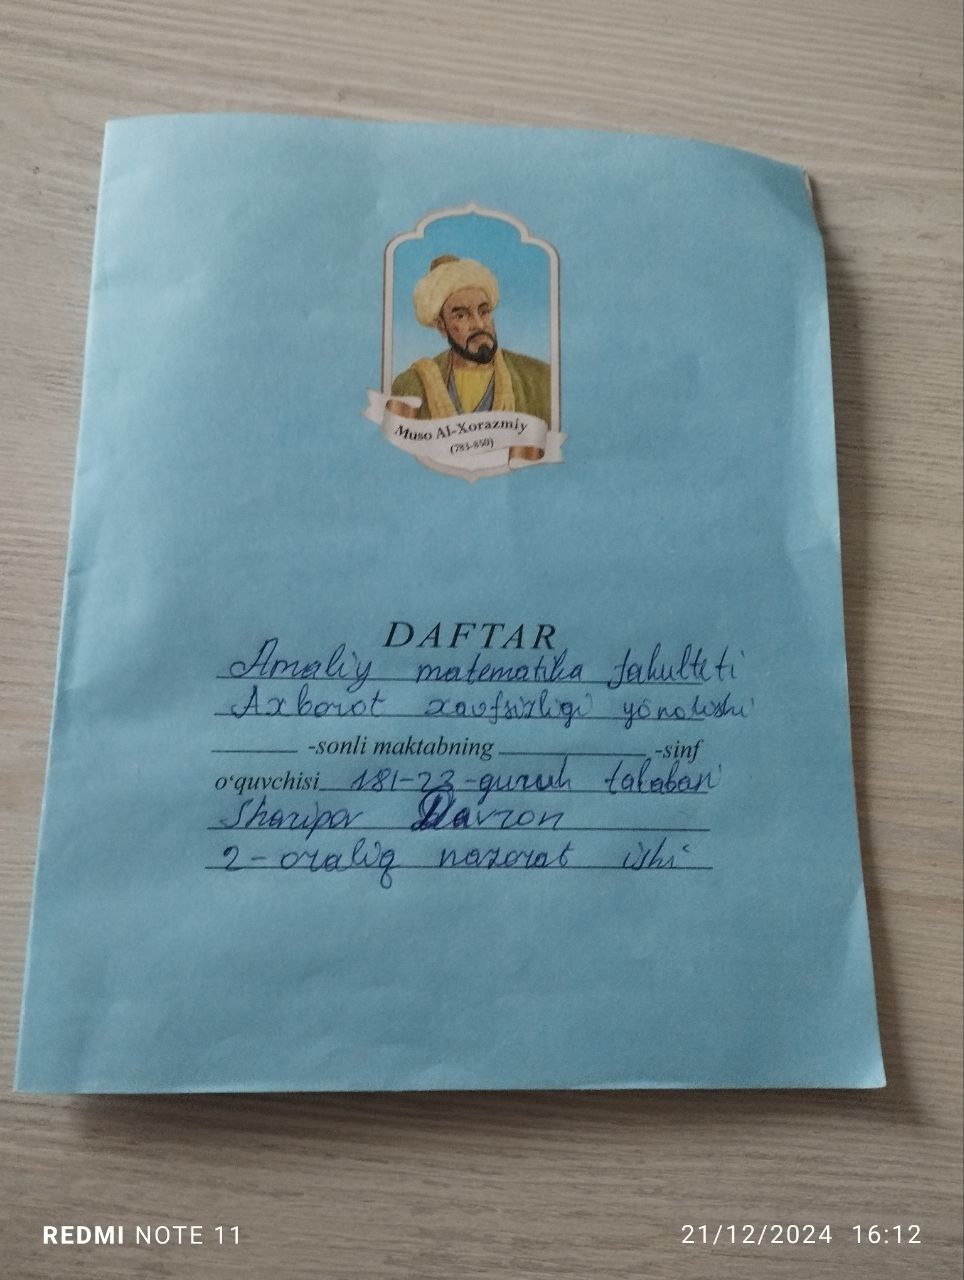 Muso Al-Xorazmiy
(783-850)
DAFTAR
Amaliy matematika fakulteti
Axborot xavfsizligi yónalishi
-sonli maktabning -sinf
o‘quvchisi 181-23-guruh talabasi
Sharipov Davron
2-oraliq nazorat ishi
REDMI NOTE 11 21/12/2024 16:12